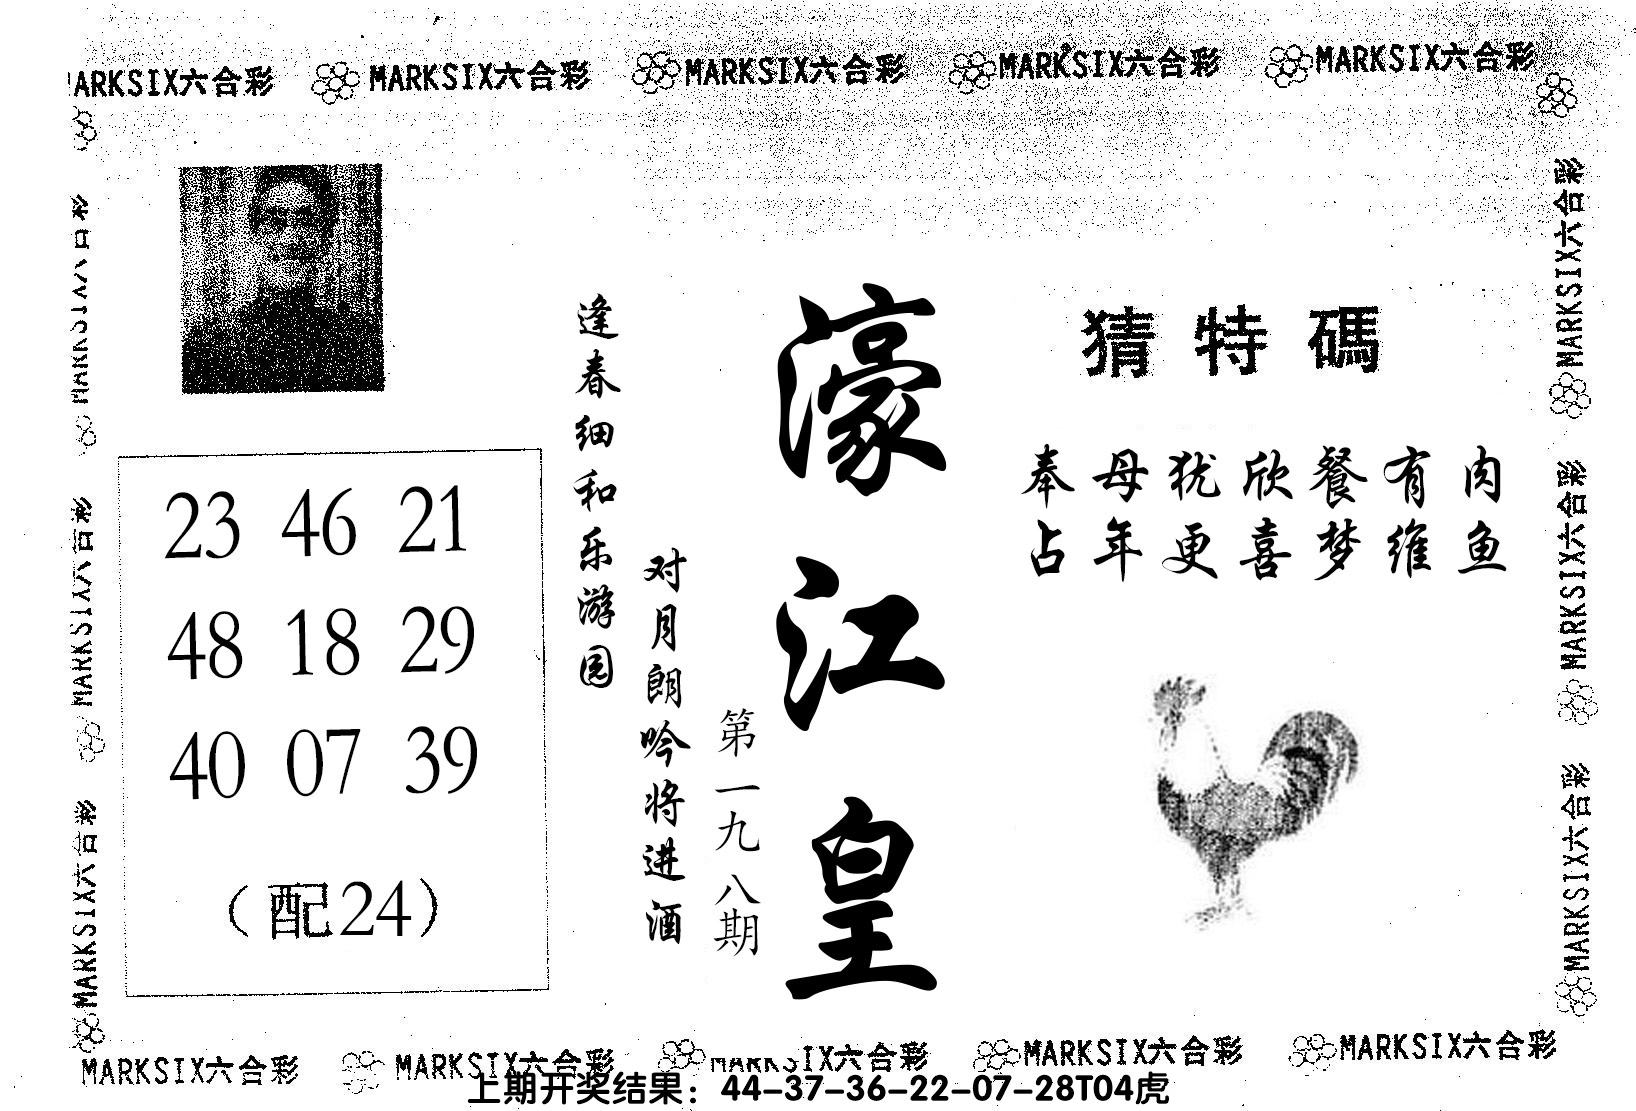 MARKSIX六合彩 MARKSIX六合彩 MARKSIX六合彩 MARKSIX六合彩
MARKSIX六合彩
MARKSIX六合彩
MARKSIX六合彩
MARKSIX六合彩
MARKSIX六合彩
MARKSIX六合彩
猜特碼
奉母犹欣餐有肉
占年更喜梦维鱼
濠江皇
第一九八期
逢春细和乐游园
对月朗吟将进酒
23 46 21
48 18 29
40 07 39
（配24）
MARKSIX六合彩 MARKSIX六合彩 MARKSIX六合彩 MARKSIX六合彩
上期开奖结果：44-37-36-22-07-28T04虎